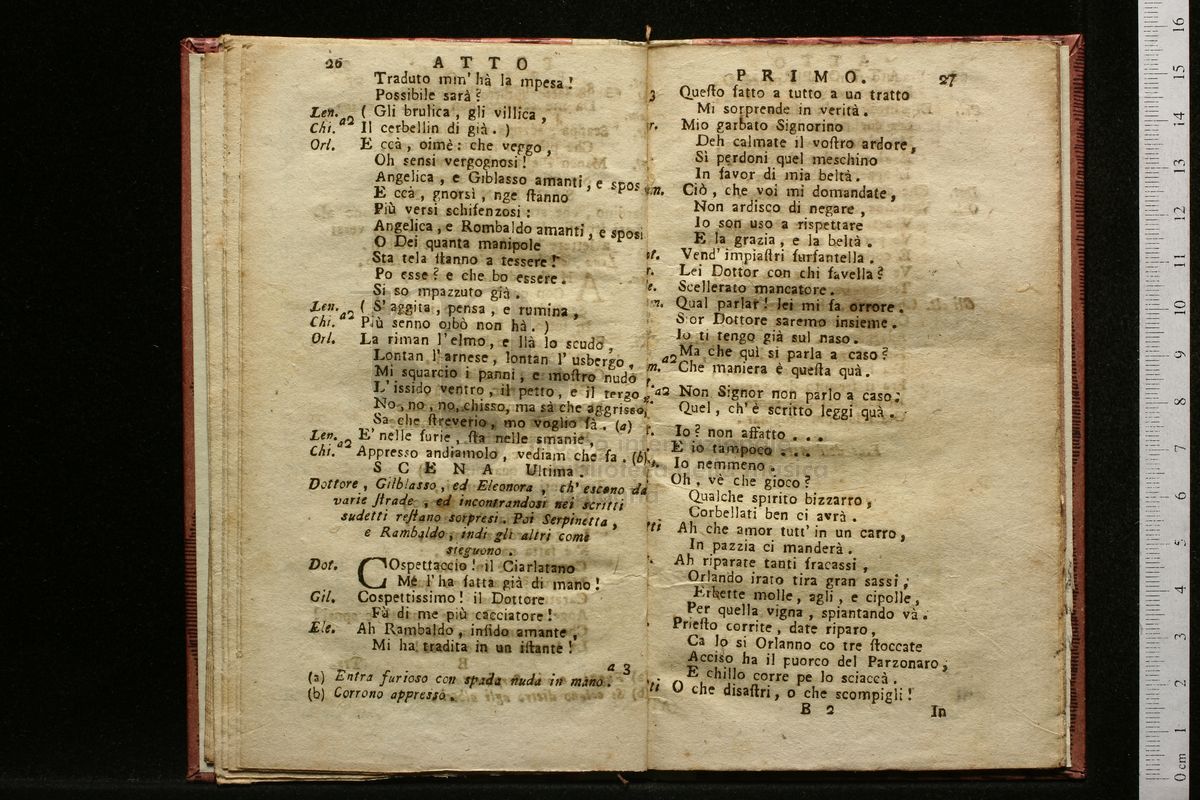 26 ATTO
Traduto mm' hà la mpesa!
Possibile sarà?
Len. a2 ( Gli brulica, gli villica,
Chi. Il cerbellin di già. )
Orl. E ccà, oimè: che veggo,
Oh sensi vergognosi!
Angelica, e Giblasso amanti, e spos
E ccà, gnorsì, nge stanno
Più versi schifenzosi:
Angelica, e Rombaldo amanti, e sposi
O Dei quanta manipole
Sta tela stanno a tessere!
Po esse? e che bo essere.
Si so mpazzuto già.
Len. a2 ( S' aggita, pensa, e rumina,
Chi. Più senno oibò non hà. )
Orl. La riman l' elmo, e llà lo scudo,
Lontan l' arnese, lontan l' usbergo,
Mi squarcio i panni, e mostro nudo
L' issido ventro, il petto, e il tergo
No, no, no, chisso, ma sà che aggrisso,
Sa che streverio, mo voglio fà. (a)
Len. a2 E' nelle furie, sta nelle smanie,
Chi. Appresso andiamolo, vediam che fa. (b)
SCENA Ultima.
Dottore, Gilblasso, ed Eleonora, ch' escono da
varie strade, ed incontrandosi nei scritti
sudetti restano sorpresi. Poi Serpinetta,
e Rambaldo, indi gli altri come
sieguono.
Dot. COspettaccio! il Ciarlatano
Me l' ha fatta già di mano!
Gil. Cospettissimo! il Dottore
Fà di me più cacciatore!
Ele. Ah Rambaldo, infido amante,
Mi ha tradita in un istante!
a 3
(a) Entra furioso con spada nuda in mano.
(b) Corrono appresso.
PRIMO. 27
3 Questo fatto a tutto a un tratto
Mi sorprende in verità.
r. Mio garbato Signorino
Deh calmate il vostro ardore,
Sì perdoni quel meschino
In favor di mia beltà.
m. Ciò, che voi mi domandate,
Non ardisco di negare,
Io son uso a rispettare
E la grazia, e la beltà.
ot. Vend' impiastri furfantella.
r. Lei Dottor con chi favella?
le. Scellerato mancatore.
m. Qual parlar! lei mi fa orrore.
Sior Dottore saremo insieme.
Io ti tengo già sul naso.
a2 Ma che quì si parla a caso?
m. Che maniera è questa quà.
r. a2 Non Signor non parlo a caso;
Quel, ch' è scritto leggi quà.
r. Io? non affatto . . .
E io tampoco . . .
Io nemmeno.
Oh, vè che gioco?
Qualche spirito bizzarro,
Corbellati ben ci avrà.
tti Ah che amor tutt' in un carro,
In pazzia ci manderà.
Ah riparate tanti fracassi,
Orlando irato tira gran sassi,
Erbette molle, agli, e cipolle,
Per quella vigna, spiantando và.
Priesto corrite, date riparo,
Ca lo si Orlanno co tre stoccate
Acciso ha il puorco del Parzonaro,
E chillo corre pe lo sciaccà.
tti O che disastri, o che scompigli!
B 2 In